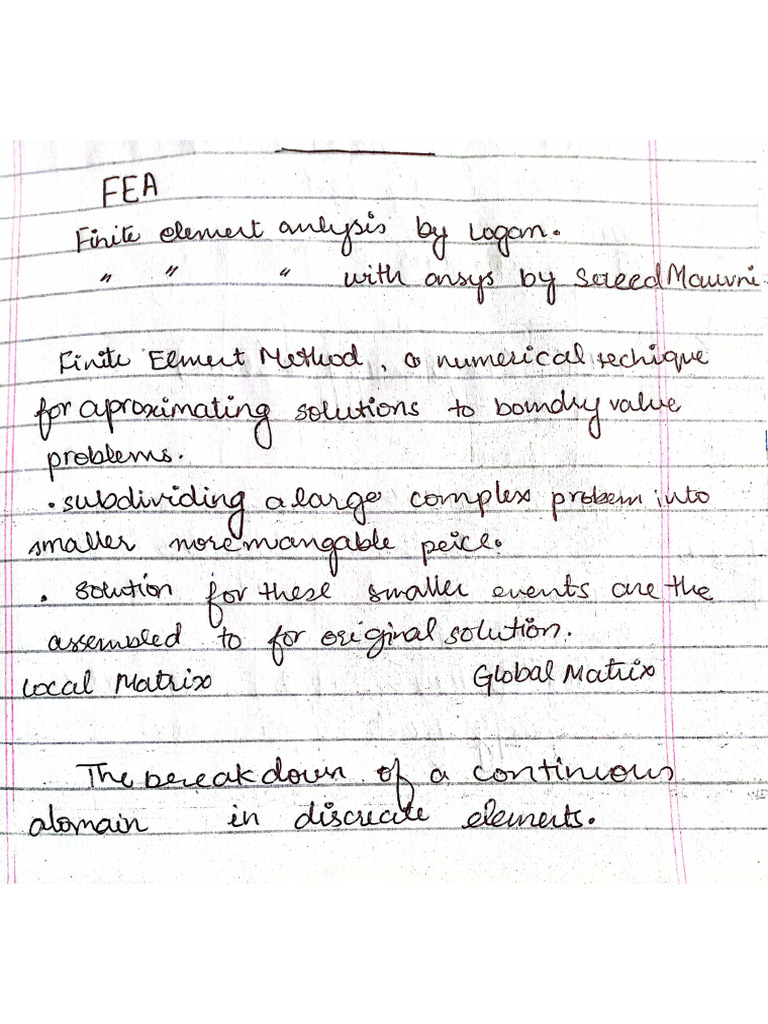 FEA
Finite element anlysis by Logan.
" " " with ansys by Saeed Mauvni
Finite Elment Method, a numerical techique
for aproximating solutions to boundry value
problems.
. subdividing a large complex probem into
smaller more mangable peice.
. solution for these smaller events are the
assembled to for original solution.
Local Matrix Global Matrix
The breakdown of a continuous
domain in discreate elements.